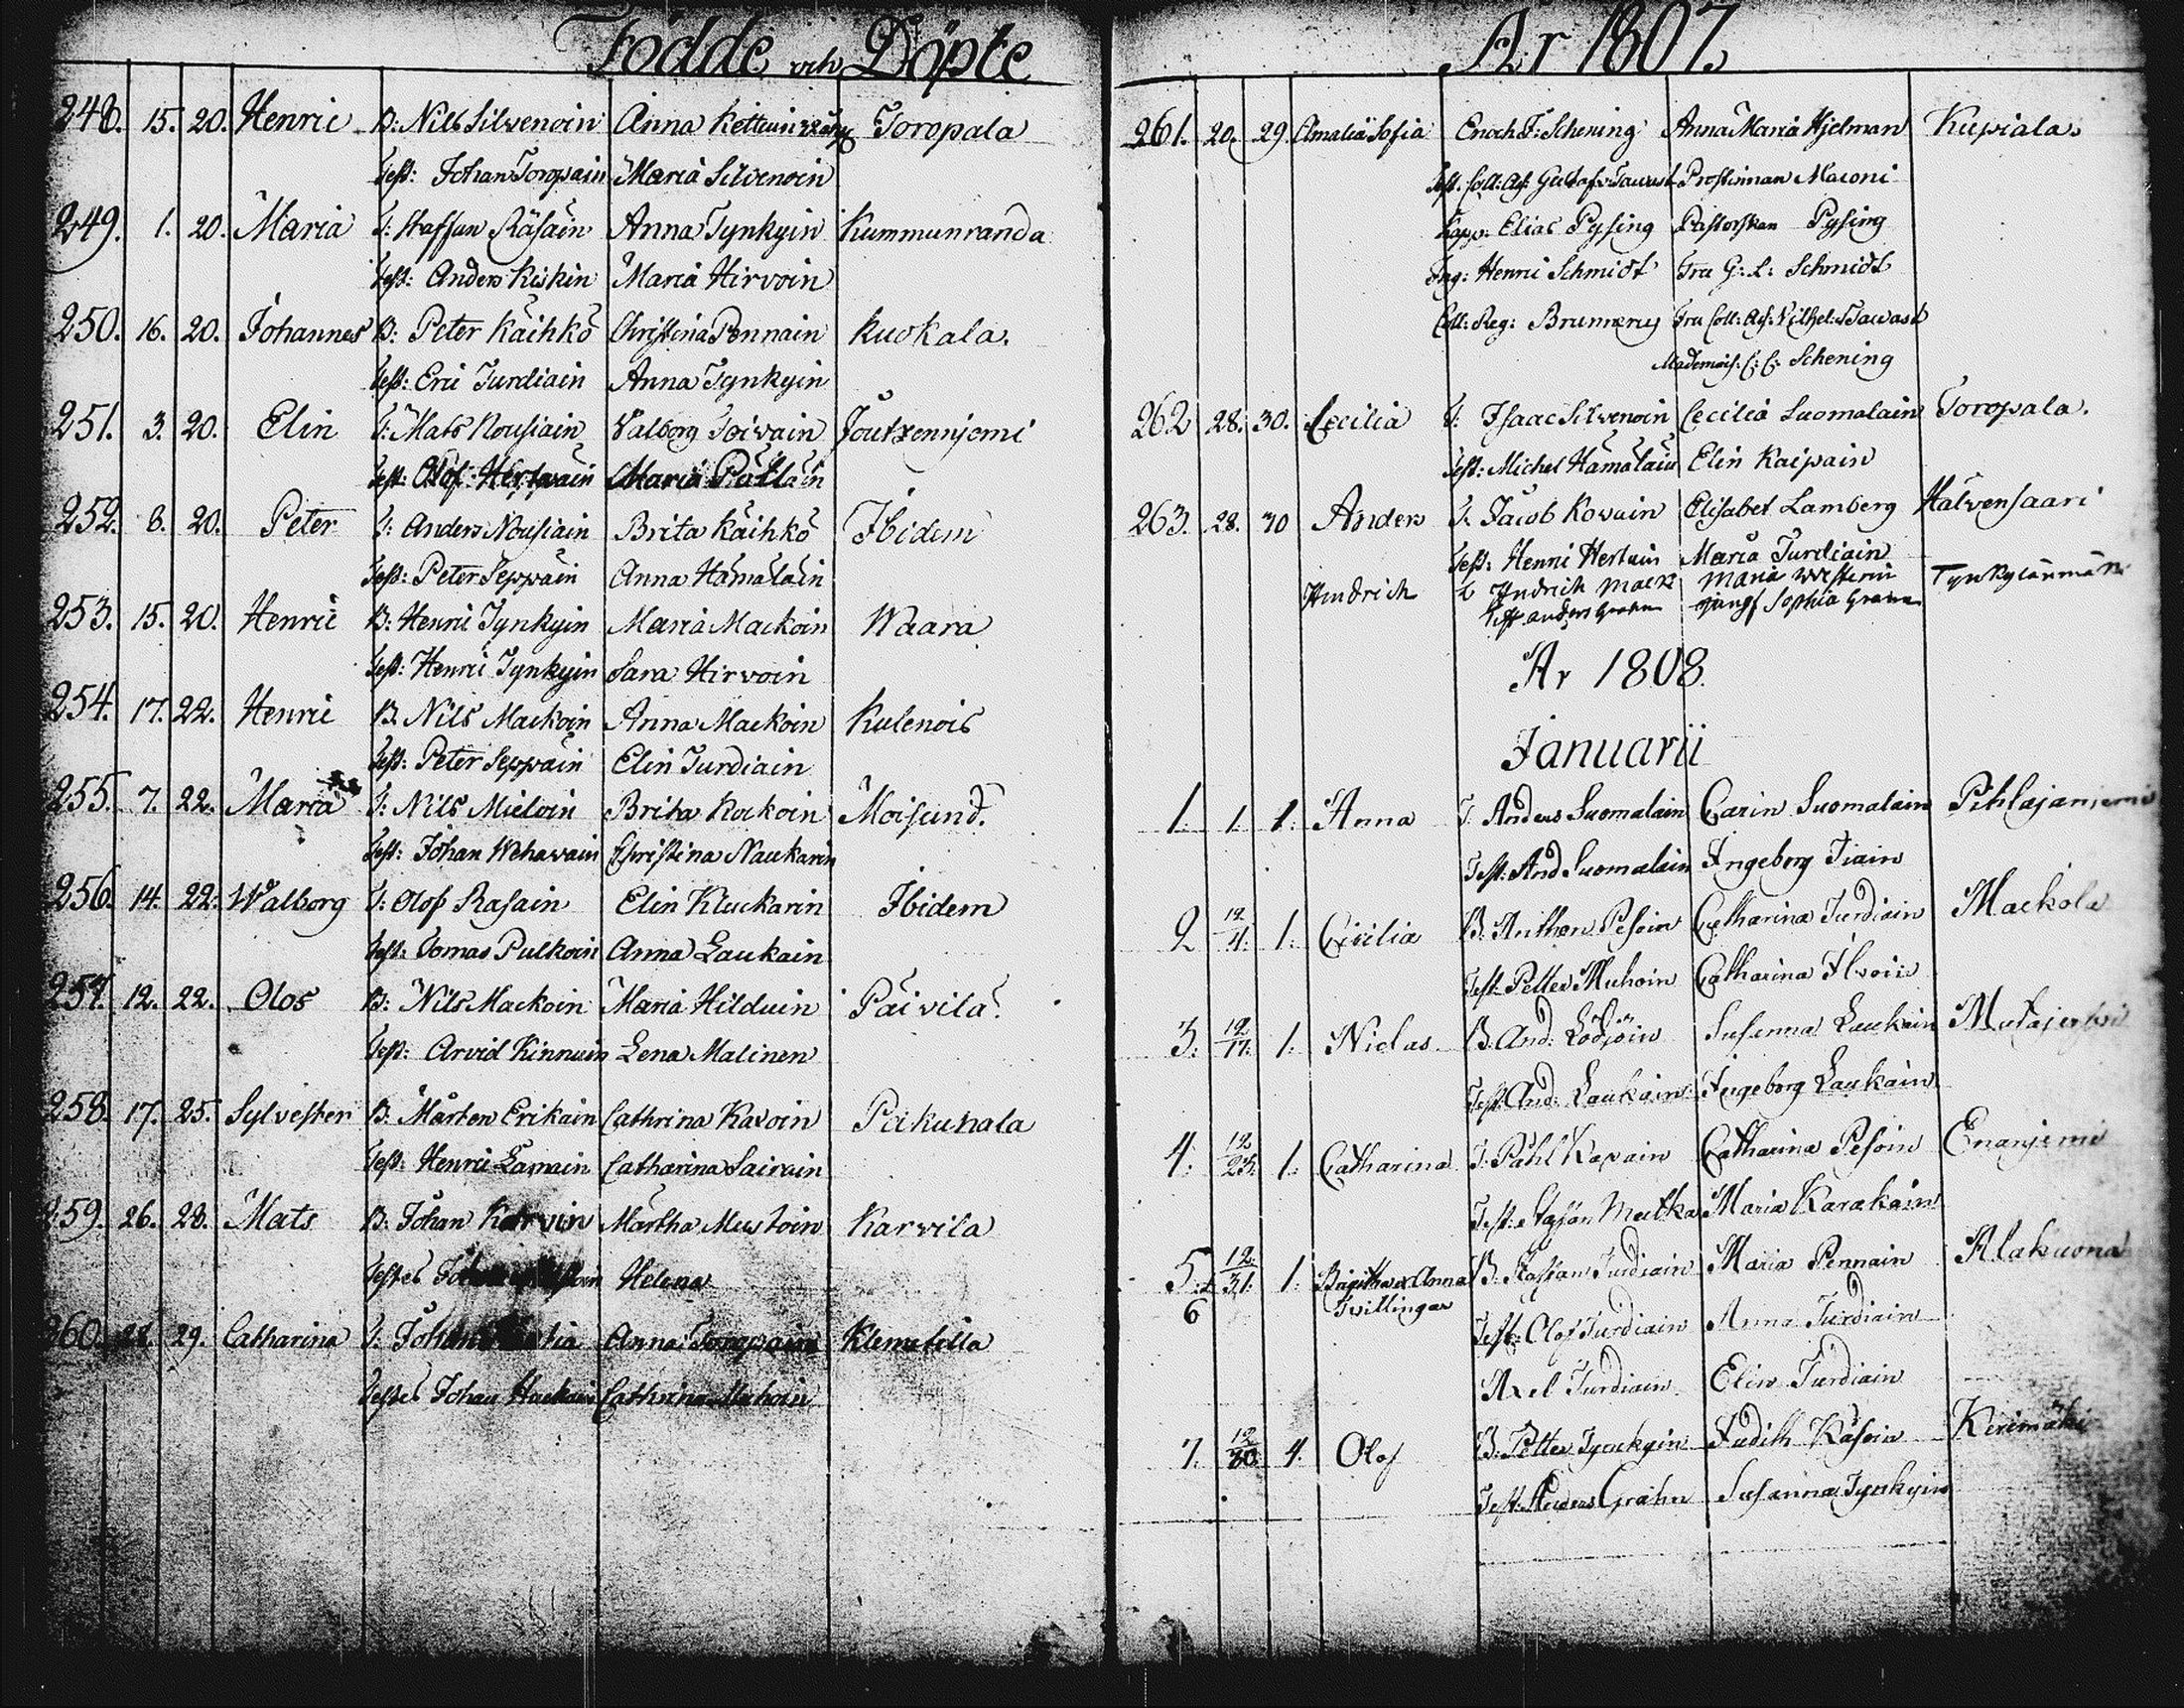 Födde och Döpte
248. 15. 20. Henric B: Nils Silvenoin Anna Kettuin Toropala
Test: Johan Toropain Maria Silvenoin
249. 1. 20. Maria T: Staffan Räsäin Anna Tynkyin Kummunranda
Test: Anders Kiskin Maria Hirvoin
250. 16. 20. Johannes B: Peter Käihkö Christina Pennain Kuokala.
Test: Eric Turdiain Anna Tynkyin
251. 3. 20. Elin T: Mats Nousiain Valborg Toivain Joutzennjemi
Test: Olof Hertwain Maria
252. 8. 20. Peter T: Anders Nousiain Brita Käihkö Ibidem
Test: Peter Seppäin Anna Hämäläin
253. 15. 20. Henric B: Henric Tynkyin Maria Mackoin Waara
Test: Henric Tynkyin Sara Hirvoin
254. 17. 22. Henric B. Nils Mackoin Anna Mackoin Kulenois
Test: Peter Seppäin Elin Turdiain
255. 7. 22. Maria T: Nils Mieloin Brita Kockoin Moisund.
Test: Johan Wehawain Christina Naukarin
256. 14. 22. Walborg T: Olof Rasain Elin Kluckarin Ibidem
Test: Tomas Pulkoin Anna Laukain
257. 12. 22. Olof B: Nils Mackoin Maria Hilduin Päivilä.
Test: Arvid Kinnuin Lena Malinen
258. 17. 25. Sylvester B: Mårten Erikain Cathrina Kavoin Pakunala
Test: Henric Catharina Sairain
259. 26. 28. Mats B: Johan Märtha Mustoin Karvila
Testes Helena
260. 29. Catharina T: Johan Anna Toropain Klemetilla
Testes Johan Cathrina Muhoin
År 1807.
261. 20. 29. Amalia Sofia Enoch F: Schening Anna Maria Hjelman Kupiala.
Test. Coll: Ass: Gustaf Tawast Prostinnan Maconi
Kapp: Elias Pysing Pastorskan Pysing
Ing: Henric Schmidt Fru G: L: Schmidt
Coll: Reg: Brunnerus Fru Coll: Ass: Vilhel: Tawast
Mademois: C: C: Schening
262 28. 30. Cecilia T: Isaac Silvenoin Cecilia Suomalain Toropala.
Test: Michel Hämäläin Elin Kaipain
263. 28. 30 Anders T. Jacob Kovain Elisabet Lamberg Hälvensaari
Test: Henric Hertuin Maria Turdiain
Hindrich Hindrich Maria Westerin Tynkylänmäki
Test anders Grahn jungf Sophia Grahn
År 1808.
Januarii
1. 1. 1. Anna T. Anders Suomalain Carin Suomalain Pihlajaniemi
Test: And Suomalain Ingeborg Tiain
2 12/4. 1. Cicilia B: Anthon Pesoin Catharina Turdiain Mackola
Test. Petter Muhoin Catharina Ilvoin
3. 12/17. 1. Niclas B. And: Lödjöin Susanna Laukain
Test: And: Laukain Ingeborg Laukain
4. 12/25. 1. Catharina T. Påhl Kapain Catharina Pesoin Enanjemi
Test: Stafan Mutka Maria Karakain
5. + 12/31. 1. Birgitha & Anna B: Staffan Turdiain Maria Pennain Alakuona
6 Tvillingar
Test: Olof Turdiain Anna Turdiain
Axel Turdiain Elin Turdiain
7. 12/30. 4. Olof B: Petter Tynkyin Judith Käsoin Kerimäki
Test: Anders Grahn Susanna Tynkyin